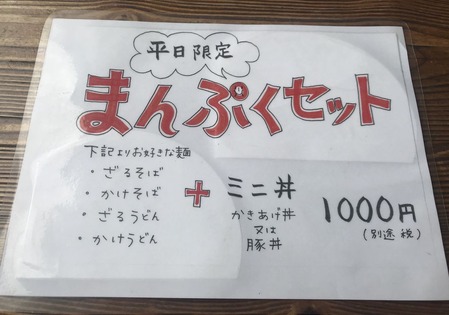 平日限定
まんぷくセット
下記よりお好きな麺
・ざるそば
・かけそば
・ざるうどん
・かけうどん
+
ミニ丼
かきあげ丼
又は
豚丼
1000円
(別途税)